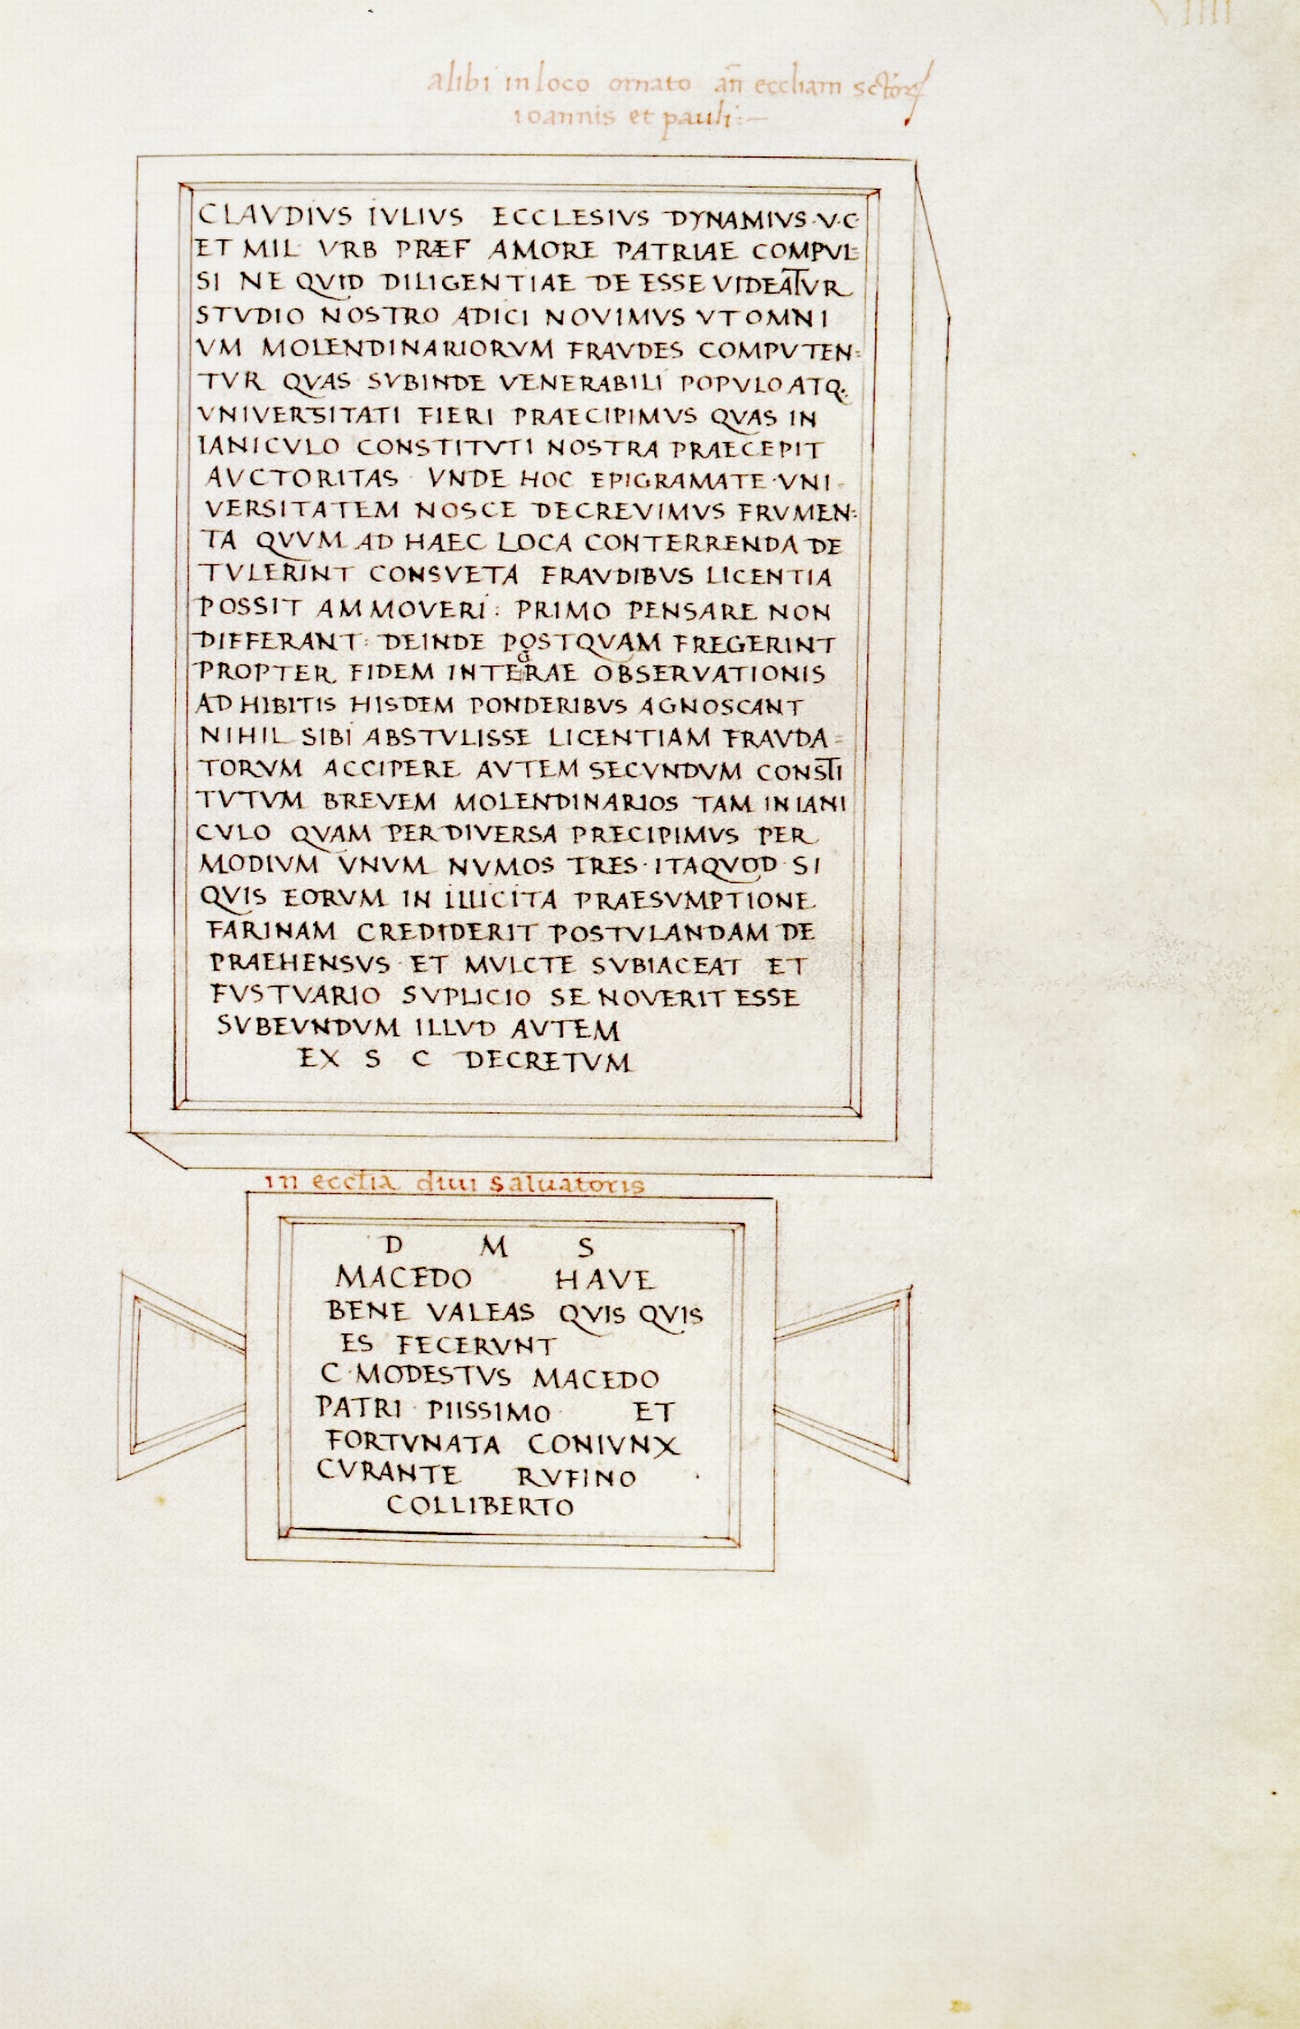 VIIII
alibi in loco ornato añ eccliam sctōrꝝ
ioannis et pauli:—
CLAVDIVS IVLIVS ECCLESIVS DYNAMIVS·V·C
ET MIL VRB PRÆF AMORE PATRIAE COMPVL=
SI NE QVID DILIGENTIAE DE ESSE VIDEATVR
STVDIO NOSTRO ADICI NOVIMVS VT OMNI
VM MOLENDINARIORVM FRAVDES COMPVTEN=
TVR QVAS SVBINDE VENERABILI POPVLO ATQ.
VNIVERSITATI FIERI PRAECIPIMVS QVAS IN
IANICVLO CONSTITVTI NOSTRA PRAECEPIT
AVCTORITAS · VNDE HOC EPIGRAMATE·VNI-
VERSITATEM NOSCE DECREVIMVS FRVMEN=
TA QVVM AD HAEC LOCA CONTERRENDA DE
TVLERINT CONSVETA FRAVDIBVS LICENTIA
POSSIT AMMOVERI: PRIMO PENSARE NON
DIFFERANT: DEINDE POSTQVAM FREGERINT
PROPTER FIDEM INTEgRAE OBSERVATIONIS
AD HIBITIS HISDEM PONDERIBVS AGNOSCANT
NIHIL SIBI ABSTVLISSE LICENTIAM FRAVDA=
TORVM ACCIPERE AVTEM SECVNDVM CONSTI
TVTVM BREVEM MOLENDINARIOS TAM IN IANI
CVLO QVAM PER DIVERSA PRECIPIMVS PER
MODIVM VNVM NVMOS TRES·ITAQVOD SI
QVIS EORVM IN ILLICITA PRAESVMPTIONE
FARINAM CREDIDERIT POSTVLANDAM DE
PRAEHENSVS·ET MVLCTE SVBIACEAT ET
FVSTVARIO SVPLICIO SE NOVERIT ESSE
SVBEVNDVM ILLVD AVTEM
EX S C DECRETVM
in ecclia diui Saluatoris
D M S
MACEDO HAVE
BENE VALEAS QVIS QVIS
ES FECERVNT
C·MODESTVS MACEDO
PATRI·PIISSIMO· ET
FORTVNATA CONIVNX
CVRANTE RVFINO ·
COLLIBERTO